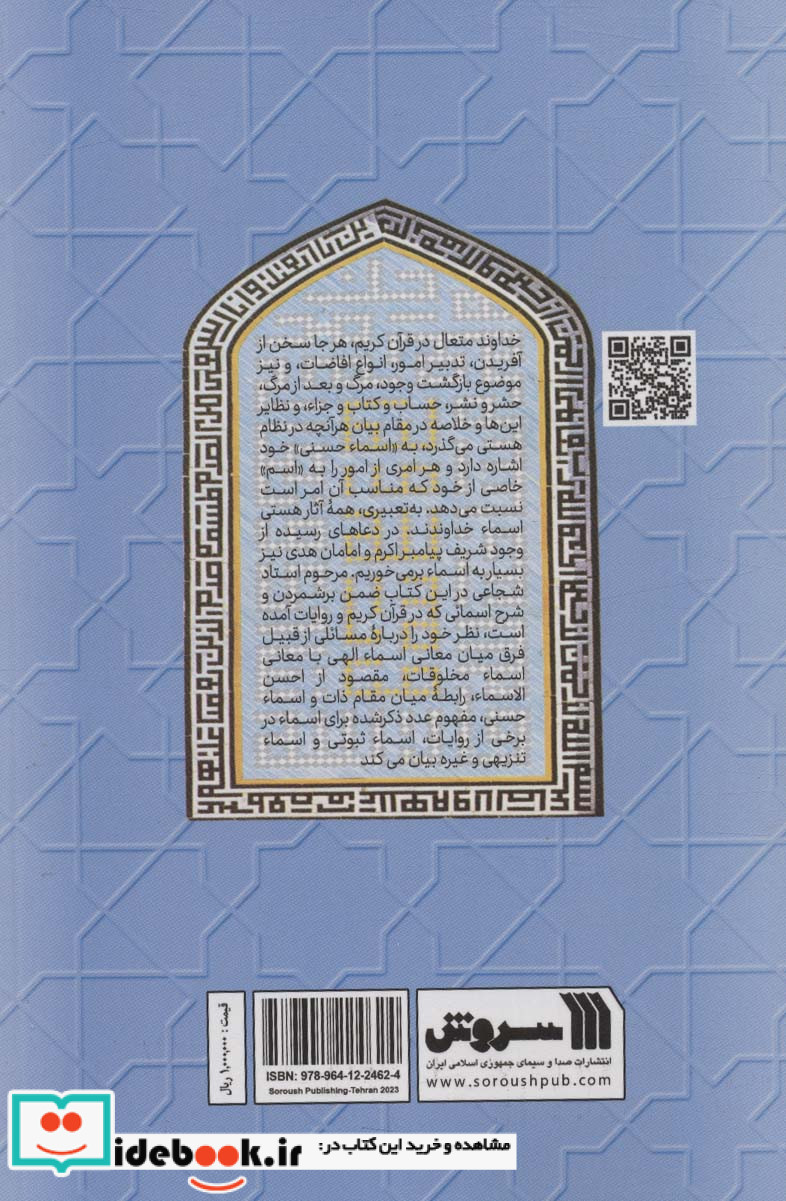 خداوند متعال در قرآن کریم، هر جا سخن از
آفریدن، تدبیر امور، انواع افاضات، و نیز
موضوع بازگشت وجود، مرگ و بعد از مرگ،
حشر و نشر، حساب و کتاب و جزاء، و نظایر
این‌ها و خلاصه در مقام بیان هرآنچه در نظام
هستی می‌گذرد، به «اسماء حسنی» خود
اشاره دارد و هر امری از امور را به «اسم»
خاصی از خود که مناسب آن امر است
نسبت می‌دهد. به‌تعبیری، همهٔ آثار هستی
اسماء خداوندند. در دعاهای رسیده از
وجود شریف پیامبر اکرم و امامان هدی نیز
بسیار به اسماء برمی‌خوریم. مرحوم استاد
شجاعی در این کتاب ضمن برشمردن و
شرح اسمائی که در قرآن کریم و روایات آمده
است، نظر خود را دربارهٔ مسائلی از قبیل
فرق میان معانی اسماء الهی با معانی
اسماء مخلوقات، مقصود از احسن
الاسماء، رابطهٔ میان مقام ذات و اسماء
حسنی، مفهوم عدد ذکرشده برای اسماء در
برخی از روایات، اسماء ثبوتی و اسماء
تنزیهی و غیره بیان می کند
سروش
انتشارات صدا و سیمای جمهوری اسلامی ایران
www.soroushpub.com
ISBN: 978-964-12-2462-4
Soroush Publishing-Tehran 2023
قیمت: ۱,۰۰۰,۰۰۰ ریال
مشاهده و خرید این کتاب در:
idebook.ir